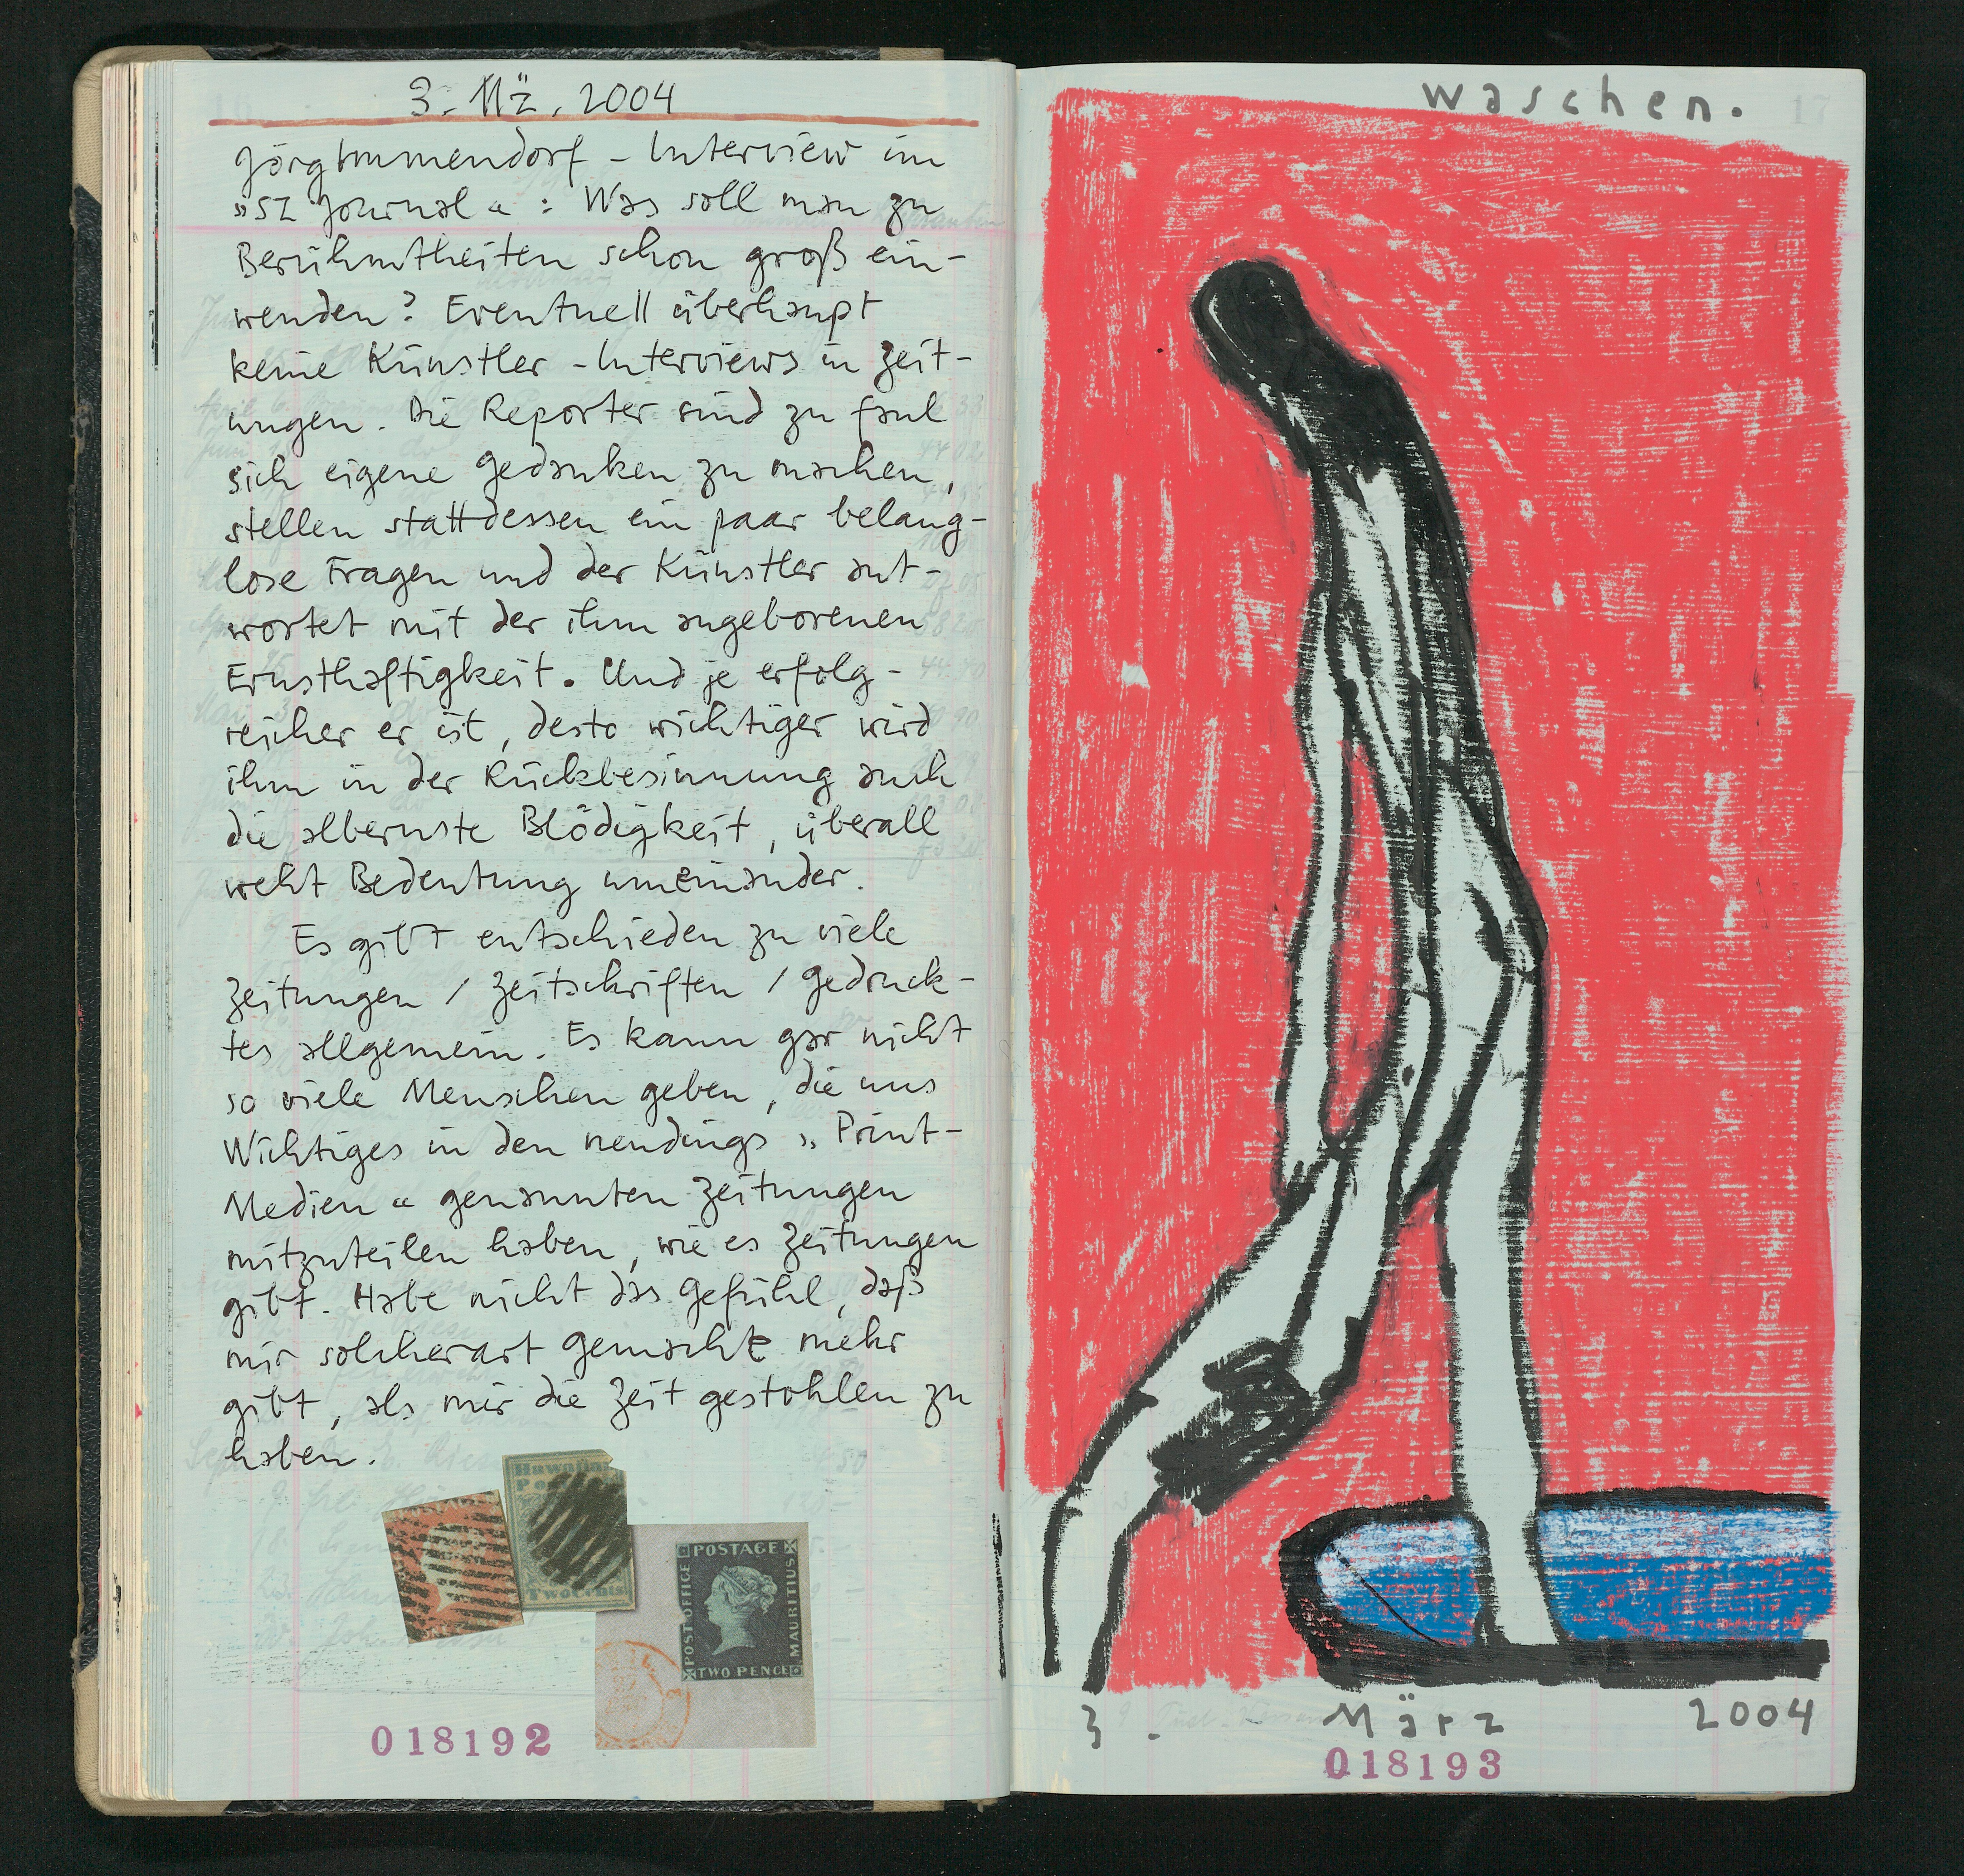 3. Mä. 2004
Jörg Immendorf - Interview im
»SZ Journal« : Was soll man zu
Berühmtheiten schon groß ein-
wenden? Eventuell überhaupt
keine Künstler - Interviews in Zeit-
ungen. Die Reporter sind zu faul
sich eigene Gedanken zu machen,
stellen stattdessen ein paar belang-
lose Fragen und der Künstler ant-
wortet mit der ihm angeborenen
Ernsthaftigkeit. Und je erfolg-
reicher er ist, desto wichtiger wird
ihm in der Rückbesinnung auch
die albernste Blödigkeit, überall
weht Bedeutung umeinander.
Es gibt entschieden zu viele
Zeitungen / Zeitschriften / Gedruck-
tes allgemein. Es kann gar nicht
so viele Menschen geben, die uns
Wichtiges in den neudings »Print-
Medien« genannten Zeitungen
mitzuteilen haben, wie es Zeitungen
gibt. Habe nicht das Gefühl, daß
mir solcherart Gemachte mehr
gibt, als mir die Zeit gestohlen zu
haben.
Hawaiian
Two Cents
POSTAGE
POST OFFICE
MAURITIUS
TWO PENCE
018192
waschen.
17
3. März 2004
018193